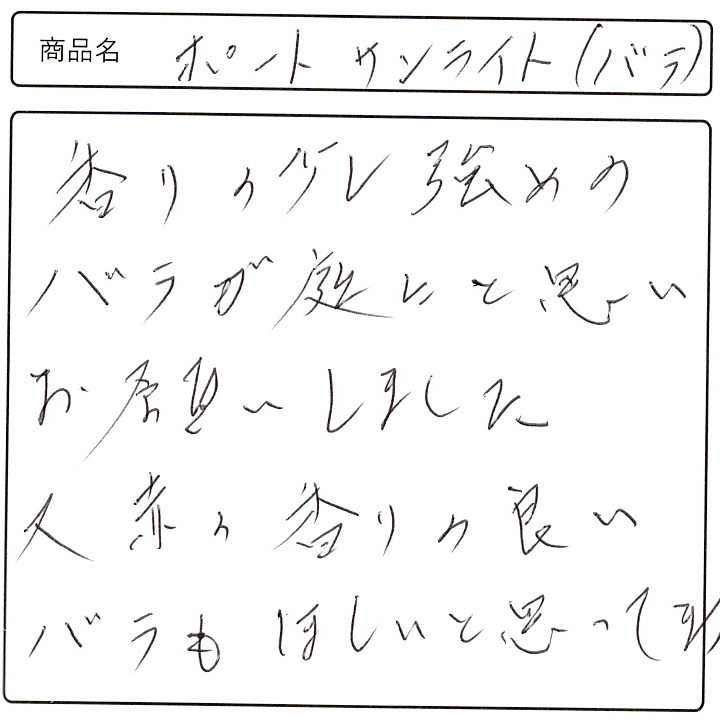 商品名 ポートサンライト(バラ)
香りの少し強めの
バラが庭にと思い
お願いしました
又赤の香りの良い
バラもほしいと思ってま